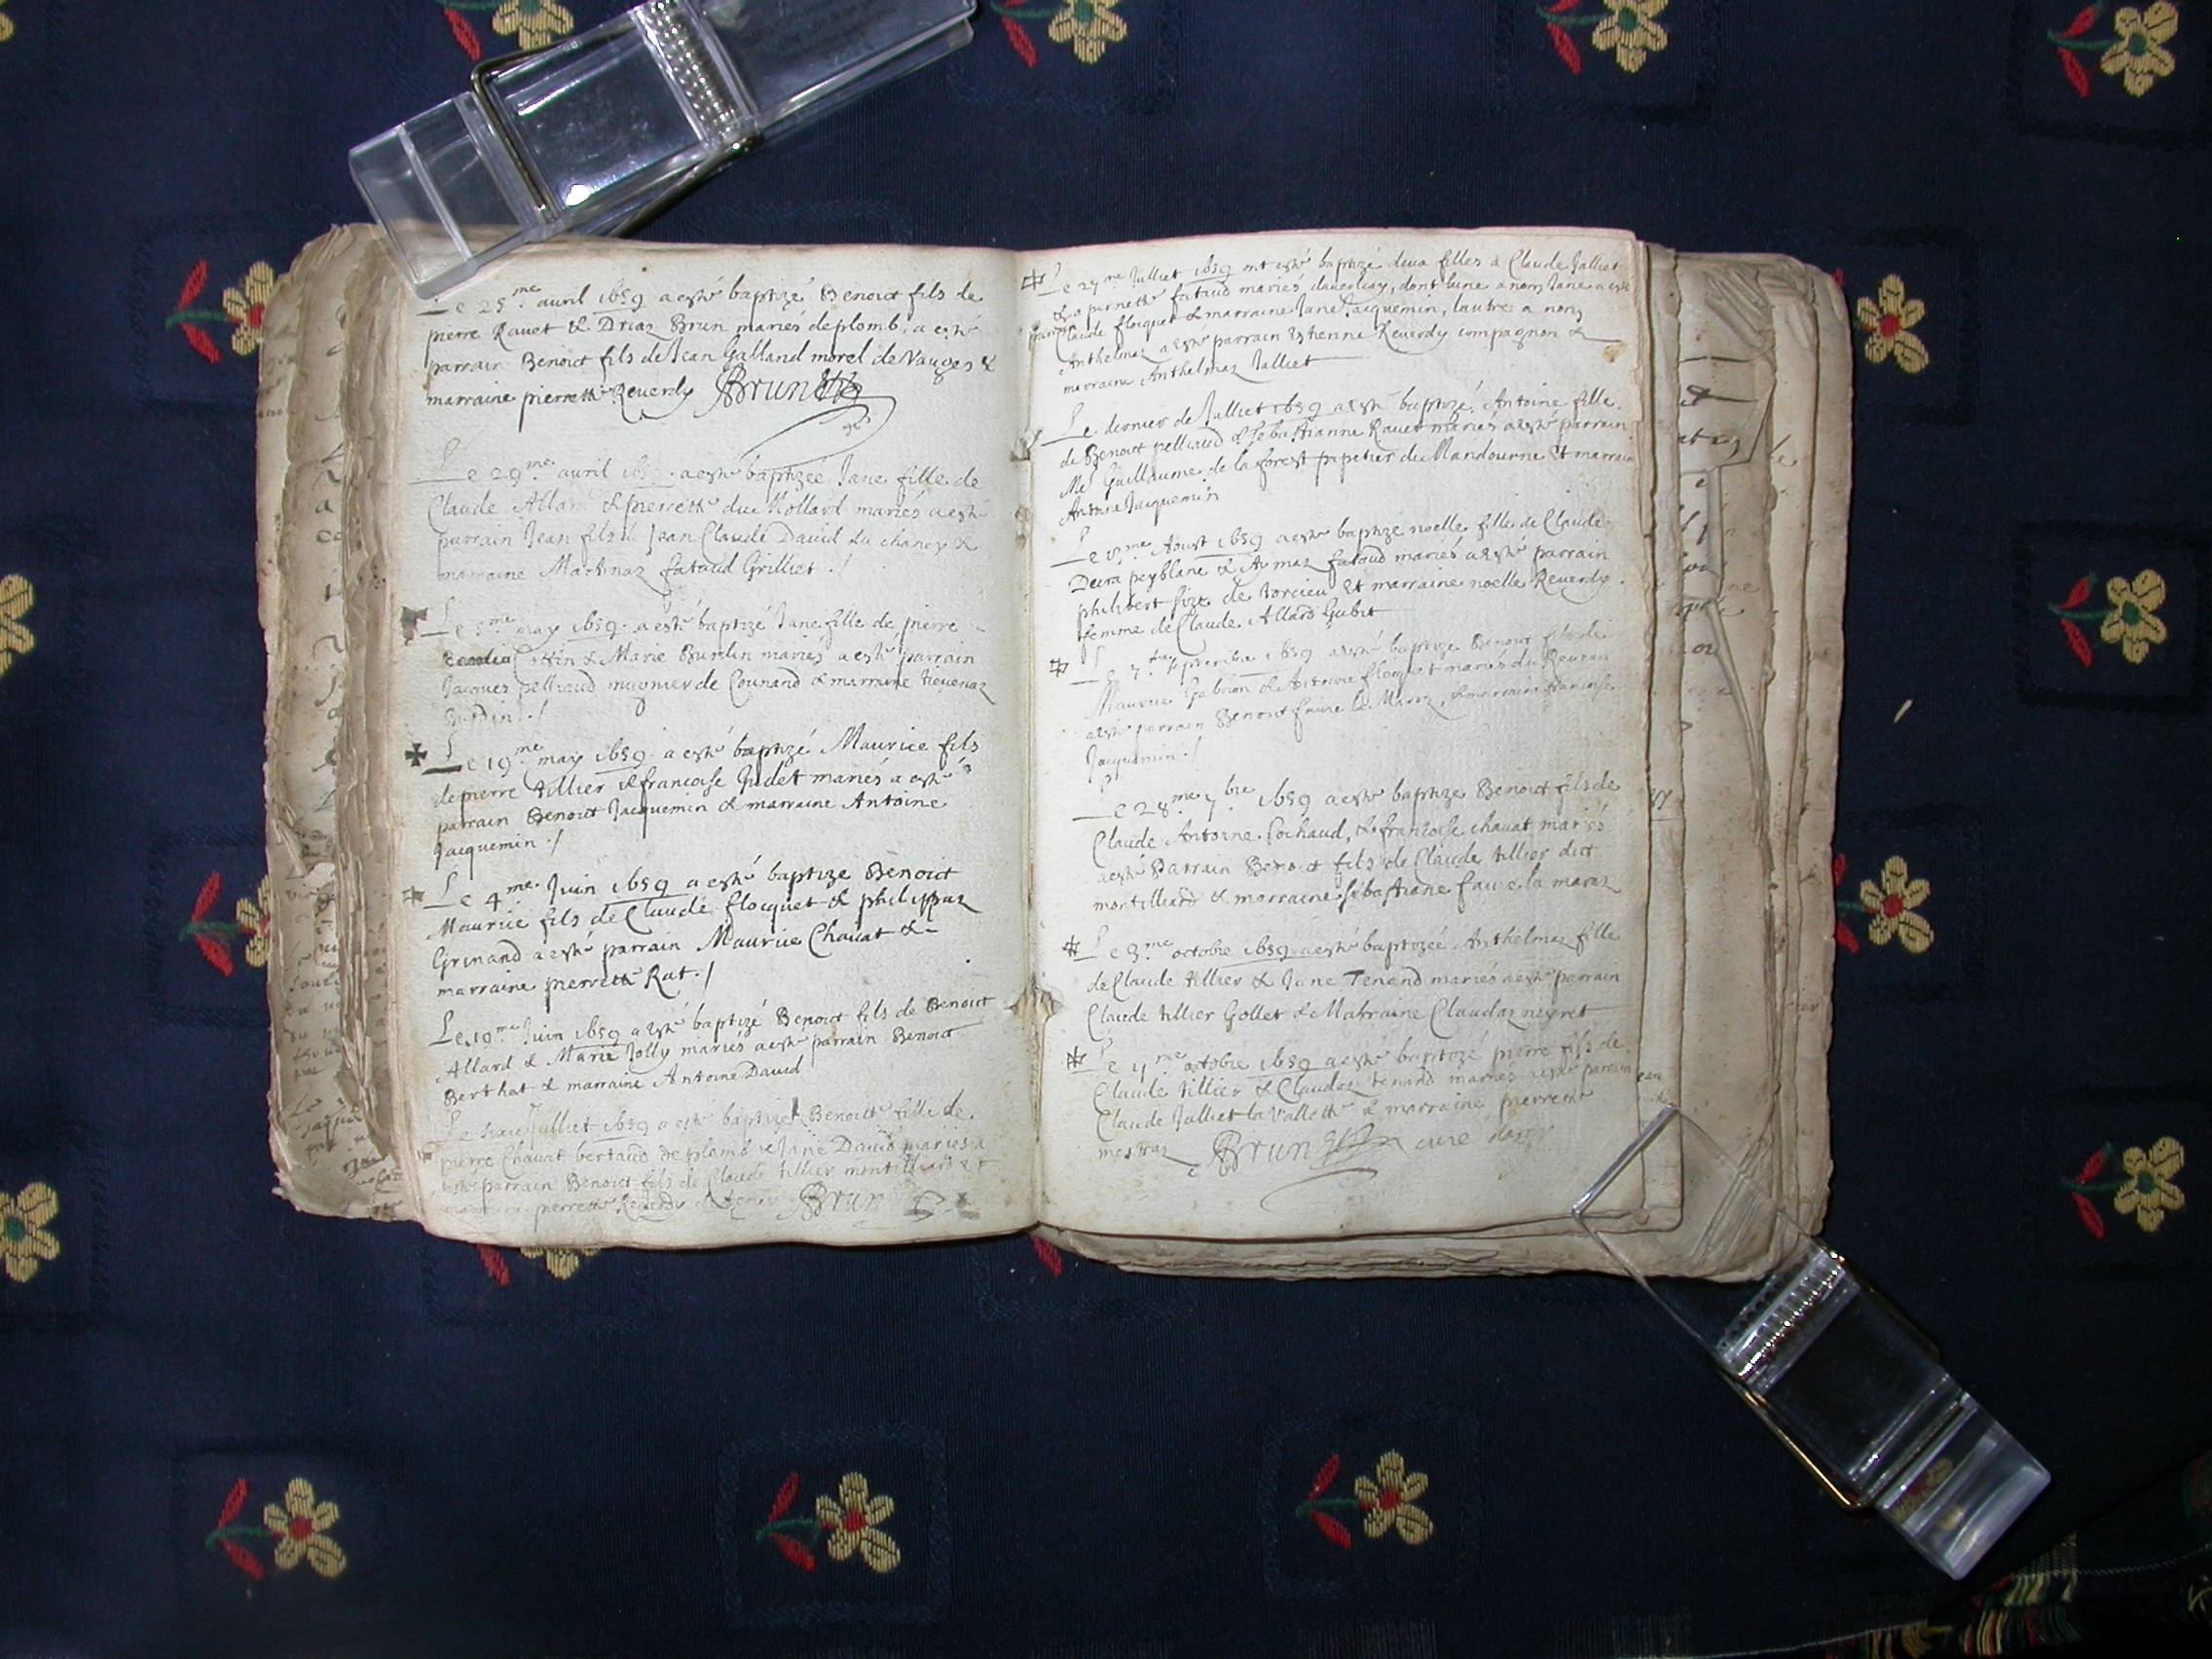 Le 25me avril 1659 a esté baptizé Benoict fils de
pierre Ravet & Driaz Brun mariés de plomb. a esté
parrain Benoict fils de Jean Galland morel de Vauges &
marraine pierrette Reverdy Brun
Le 29me avril a esté baptizee Jane fille de
Claude & pierrette du Mollard mariés a esté
parrain Jean fils de Jean Claude David du chaney &
marraine Martinaz fataud Grilliet ./
Le 5me may 1659 a esté baptizé Jane fille de pierre
& Marie Burdin mariés a esté parrain
Jacques pelliaud mugnier de Counand & marraine
./
Le 19me may 1659 a esté baptizé Maurice fils
de pierre tillier & francoise Judet mariés a esté
parrain Benoict Jacquemin & marraine Antoine
Jacquemin ./
Le 4me Juin 1659 a esté baptize Benoict
Maurice fils de Claude flocquet & philippaz
Grinand a esté parrain Maurice Chavat &
marraine pierrette Rat ./
Le 19me Juin 1659 a esté baptizé Benoict fils de Benoict
Allard & Marie Jolly mariés a esté parrain Benoict
Berthet & marraine Antoine David
Le Julliet 1659 a esté baptizé Benoicte fille de
pierre Chavat bertaud de plomb & Jane David mariés a
esté parrain Benoict fils de Claude tillier montilliard et
pierrette Reverdy Brun
Le 27me Julliet 1659 ont esté baptizé deux filles a Claude Jalliet
& a pernette fataud mariés, dont lune a nom Jane a esté
parr Claude flocquet & marraine Jane Jacquemin, lautre a nom
Anthelmaz a esté parrain Estienne Reverdy compagnon &
marraine Anthelmaz Jalliet
Le dernier de Julliet 1659 a esté baptizé Antoine fille
de Benoict pelliaud & sebastianne Ravet mariés a esté parrain
Me Guillaume de la forest papetier du Mandourne Et marraine
Antoine Jacquemin
Le Aoust 1659 a esté baptize noelle fille de Claude
peyblanc & Aymaz fatoud mariés a esté parrain
philibert size de torcieu Et marraine noelle Reverdy
femme de Claude Allard Gubet
Le 7me septembre 1659 a esté baptize Benoict fils de
Maurice Gabrion & Antoine flocquet mariés du
a esté parrain Benoict faure la Maraz, & marraine francoise
Jacquemin ./
Le 28me 7bre 1659 a esté baptize Benoict fils de
Claude Antoine Cochaud, & francoise chavat mariés
a esté Parrain Benoict fils de Claude tillier dict
montilliard & marraine sebastiane faure la maraz
Le 3me octobre 1659 a esté baptizeé Anthelmaz fille
de Claude tillier & Jane Tenand mariés a esté parrain
Claude tillier Gollet & Marraine Claudaz neyret
Le 11me octobre 1659 a esté baptizé pierre fils de
Claude tillier & Claudaz tenand mariés a esté parrain
Claude Jalliet la Vallette & marraine pierrette
mestraz Brun curé